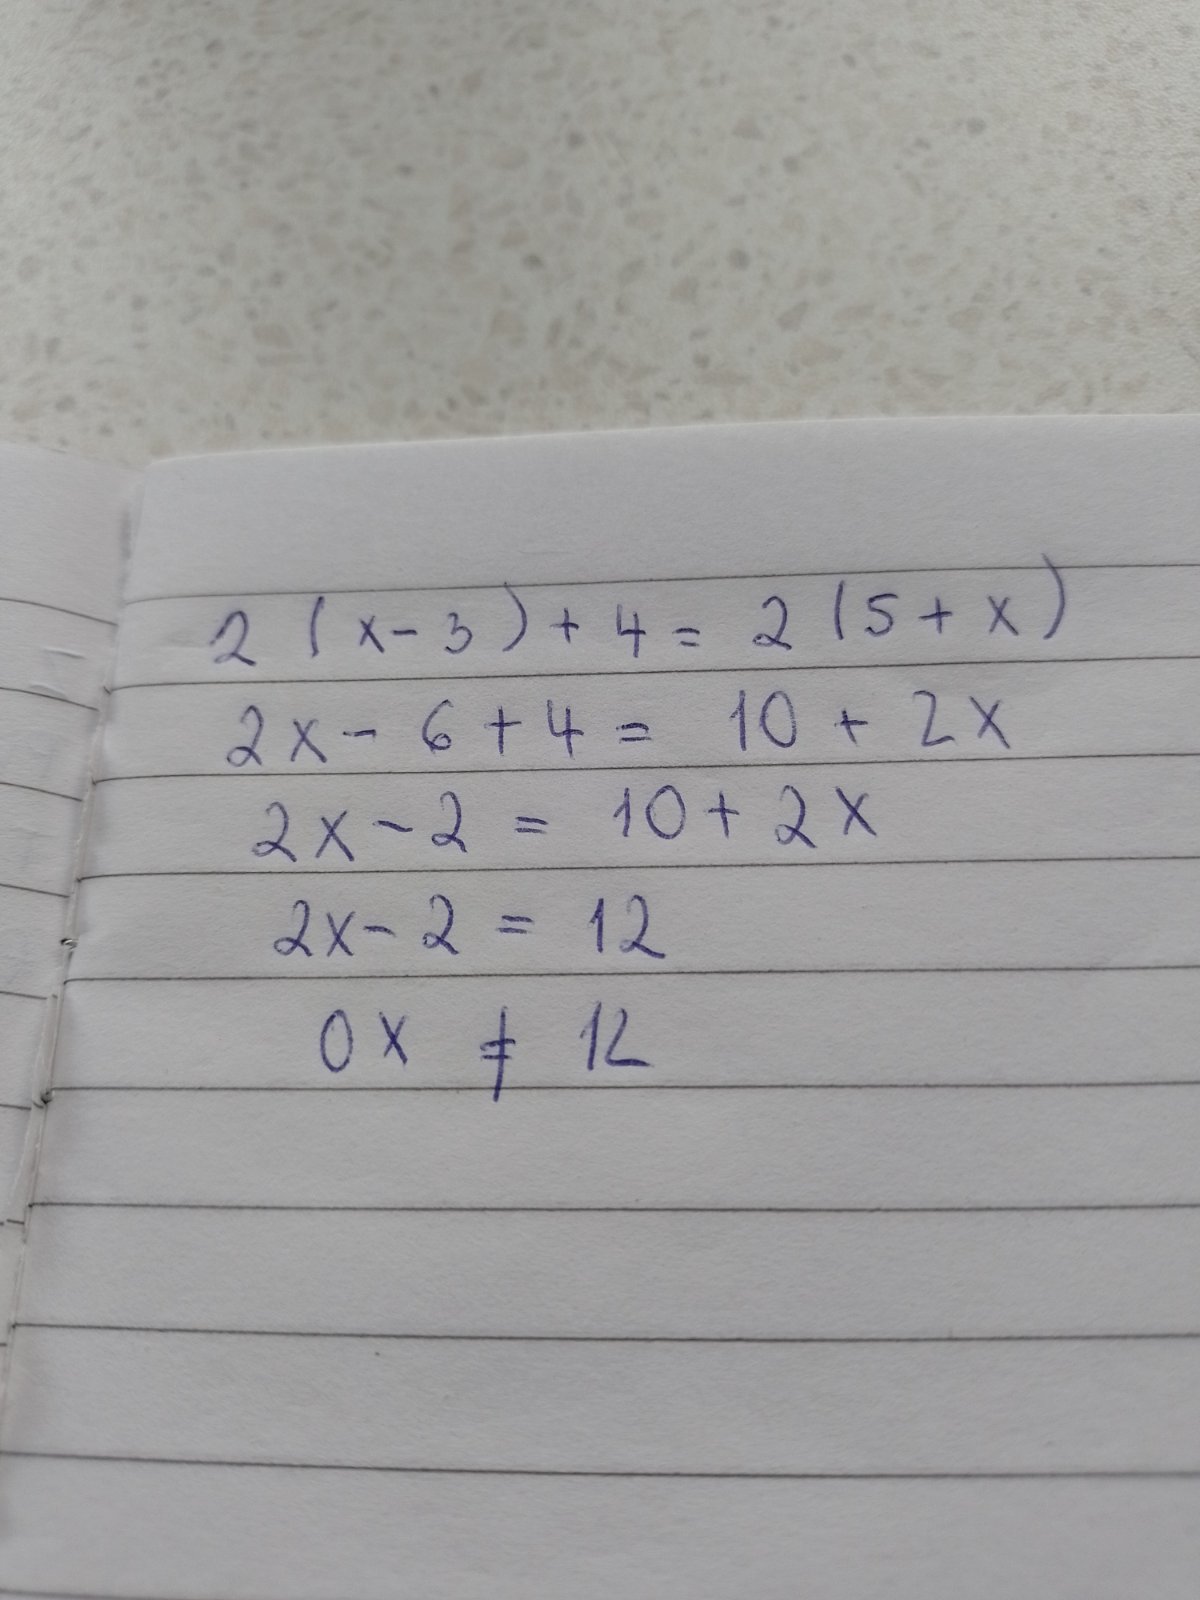 2 (x - 3) + 4 = 2 (5 + x)
2x - 6 + 4 = 10 + 2x
2x - 2 = 10 + 2x
2x - 2 = 12
0x ≠ 12